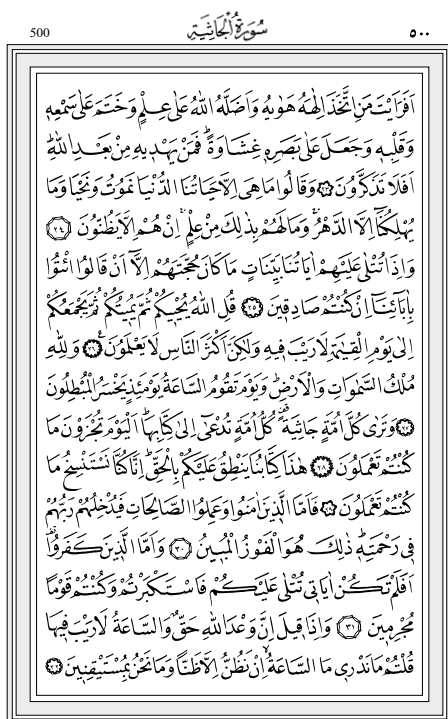 500 سُورَةُ الْجَاثِيَةِ ٥٠٠
اَفَرَاَيْتَ مَنِ اتَّخَذَ اِلٰهَهُ هَوٰيهُ وَاَضَلَّهُ اللّٰهُ عَلٰى عِلْمٍ وَخَتَمَ عَلٰى سَمْعِه۪
وَقَلْبِه۪ وَجَعَلَ عَلٰى بَصَرِه۪ غِشَاوَةًۜ فَمَنْ يَهْد۪يهِ مِنْ بَعْدِ اللّٰهِۜ
اَفَلَا تَذَكَّرُونَ ﴿٢٣﴾ وَقَالُوا مَا هِيَ اِلَّا حَيَاتُنَا الدُّنْيَا نَمُوتُ وَنَحْيَا وَمَا
يُهْلِكُنَٓا اِلَّا الدَّهْرُۚ وَمَا لَهُمْ بِذٰلِكَ مِنْ عِلْمٍۚ اِنْ هُمْ اِلَّا يَظُنُّونَ ﴿٢٤﴾
وَاِذَا تُتْلٰى عَلَيْهِمْ اٰيَاتُنَا بَيِّنَاتٍ مَا كَانَ حُجَّتَهُمْ اِلَّٓا اَنْ قَالُوا ائْتُوا
بِاٰبَٓائِنَٓا اِنْ كُنْتُمْ صَادِق۪ينَ ﴿٢٥﴾ قُلِ اللّٰهُ يُحْي۪يكُمْ ثُمَّ يُم۪يتُكُمْ ثُمَّ يَجْمَعُكُمْ
اِلٰى يَوْمِ الْقِيٰمَةِ لَا رَيْبَ ف۪يهِ وَلٰكِنَّ اَكْثَرَ النَّاسِ لَا يَعْلَمُونَ۟ ﴿٢٦﴾ وَلِلّٰهِ
مُلْكُ السَّمٰوَاتِ وَالْاَرْضِۜ وَيَوْمَ تَقُومُ السَّاعَةُ يَوْمَئِذٍ يَخْسَرُ الْمُبْطِلُونَ
﴿٢٧﴾ وَتَرٰى كُلَّ اُمَّةٍ جَاثِيَةً۠ كُلُّ اُمَّةٍ تُدْعٰٓى اِلٰى كِتَابِهَاۜ اَلْيَوْمَ تُجْزَوْنَ مَا
كُنْتُمْ تَعْمَلُونَ ﴿٢٨﴾ هٰذَا كِتَابُنَا يَنْطِقُ عَلَيْكُمْ بِالْحَقِّۜ اِنَّا كُنَّا نَسْتَنْسِخُ مَا
كُنْتُمْ تَعْمَلُونَ ﴿٢٩﴾ فَاَمَّا الَّذ۪ينَ اٰمَنُوا وَعَمِلُوا الصَّالِحَاتِ فَيُدْخِلُهُمْ رَبُّهُمْ
ف۪ي رَحْمَتِه۪ۜ ذٰلِكَ هُوَ الْفَوْزُ الْمُب۪ينُ ﴿٣٠﴾ وَاَمَّا الَّذ۪ينَ كَفَرُوا۠
اَفَلَمْ تَكُنْ اٰيَات۪ي تُتْلٰى عَلَيْكُمْ فَاسْتَكْبَرْتُمْ وَكُنْتُمْ قَوْمًا
مُجْرِم۪ينَ ﴿٣١﴾ وَاِذَا ق۪يلَ اِنَّ وَعْدَ اللّٰهِ حَقٌّ وَالسَّاعَةُ لَا رَيْبَ ف۪يهَا
قُلْتُمْ مَا نَدْر۪ي مَا السَّاعَةُۙ اِنْ نَظُنُّ اِلَّا ظَنًّا وَمَا نَحْنُ بِمُسْتَيْقِن۪ينَ ﴿٣٢﴾